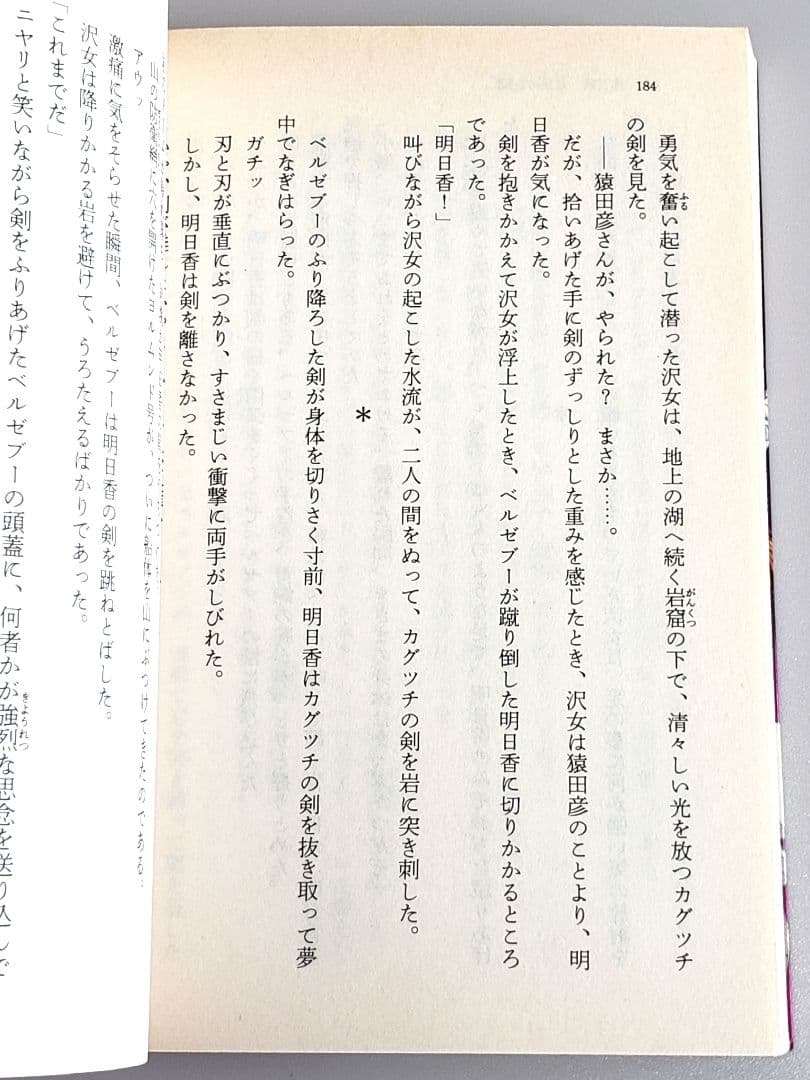 184
勇気を奮い起こして潜った沢女は、地上の湖へ続く岩窟の下で、清々しい光を放つカグツチ
の剣を見た。
――猿田彦さんが、やられた? まさか……。
だが、拾いあげた手に剣のずっしりとした重みを感じたとき、沢女は猿田彦のことより、明
日香が気になった。
剣を抱きかかえて沢女が浮上したとき、ベルゼブーが蹴り倒した明日香に切りかかるところ
であった。
「明日香!」
叫びながら沢女の起こした水流が、二人の間をぬって、カグツチの剣を岩に突き刺した。
*
ベルゼブーのふり降ろした剣が身体を切りさく寸前、明日香はカグツチの剣を抜き取って夢
中でなぎはらった。
ガチッ
刃と刃が垂直にぶつかり、すさまじい衝撃に両手がしびれた。
しかし、明日香は剣を離さなかった。
けたヨルムンド号が、ついに船体を山にぶつけてきたのである。
アウッ
激痛に気をそらせた瞬間、ベルゼブーは明日香の剣を跳ねとばした。
沢女は降りかかる岩を避けて、うろたえるばかりであった。
「これまでだ」
ニヤリと笑いながら剣をふりあげたベルゼブーの頭蓋に、何者かが強烈な思念を送り込んで